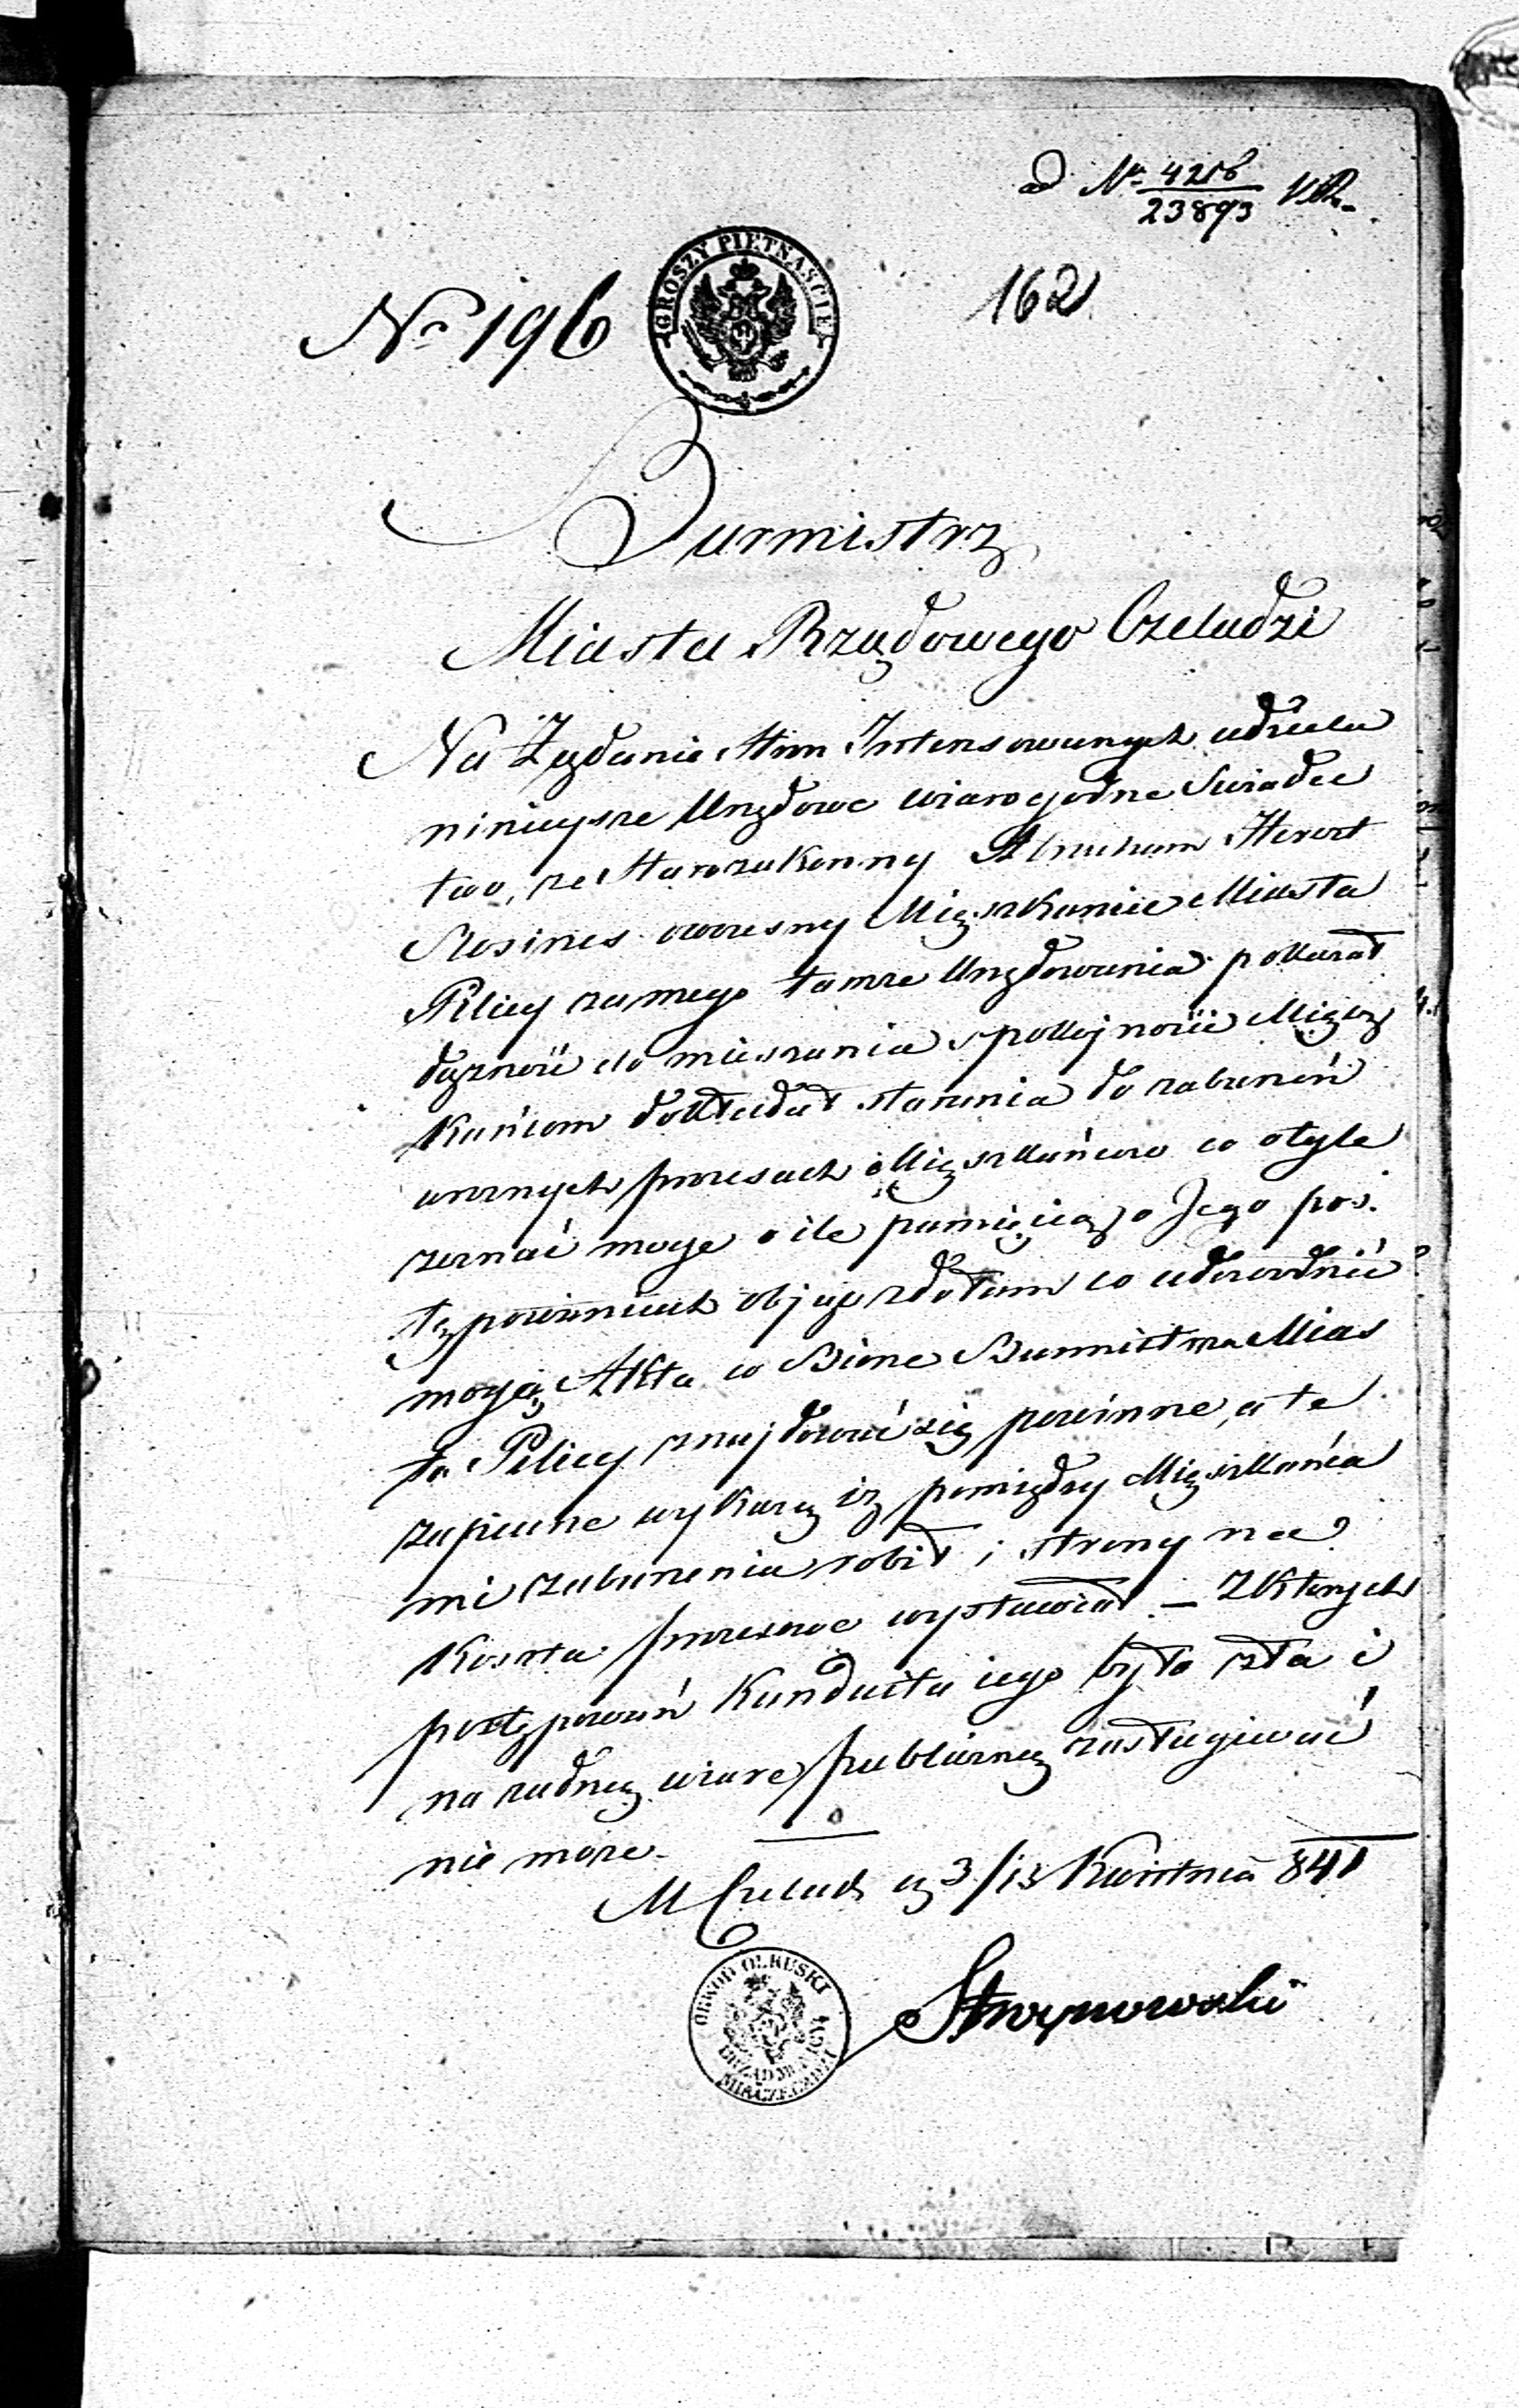 ad Nr 4256
23893
162
No 196
GROSZY PIĘTNAŚCIE
Burmistrz
Miasta Rządowego Czeladzi
Na Żądanie Stron Intersowanych udziela
ninieysze Urzędowe wiarogodne Swiadec
two, ze Starozakonny Abraham Herszt
owczesny Mięszkaniec Miasta
Pilicy za mego tamze Urzędowania pokazał
dążność do mieszania spokojności Mięsz
kańcom dokładał starania do zaburzeń
procesach Mięszkańcow co otyle
zeznać moge o ile pamięcią o Jego pos
tępowaniach objąć zdołam co udowodnić
mogą Akta w Biórze Burmistrza Mias
ta Pilicy znajdować się powinne, a te
zapewne wykarzą iz pomiędzy Mięszkańca
mi zaburzenia robił i strony na
Koszta procesowe wystawiał – Z Których
postępowań Kanduita iego było zła i
na zadną wiare publiczną zasługiwać
nie może.
M Czeladz 3/13 Kwietnia 841
OBWOD OLKUSKI
URZĄD